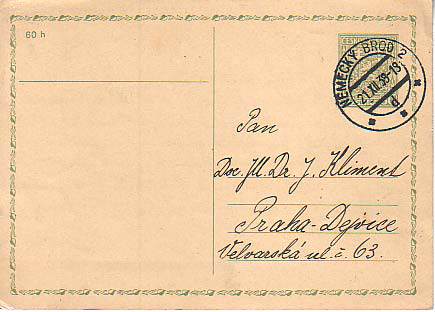 60 h
NĚMECKÝ BROD 2
21.XI.38-18
d
Pan
Doc. JU. Dr. J. Kliment
Praha-Dejvice
Velvarská ul. č. 63.